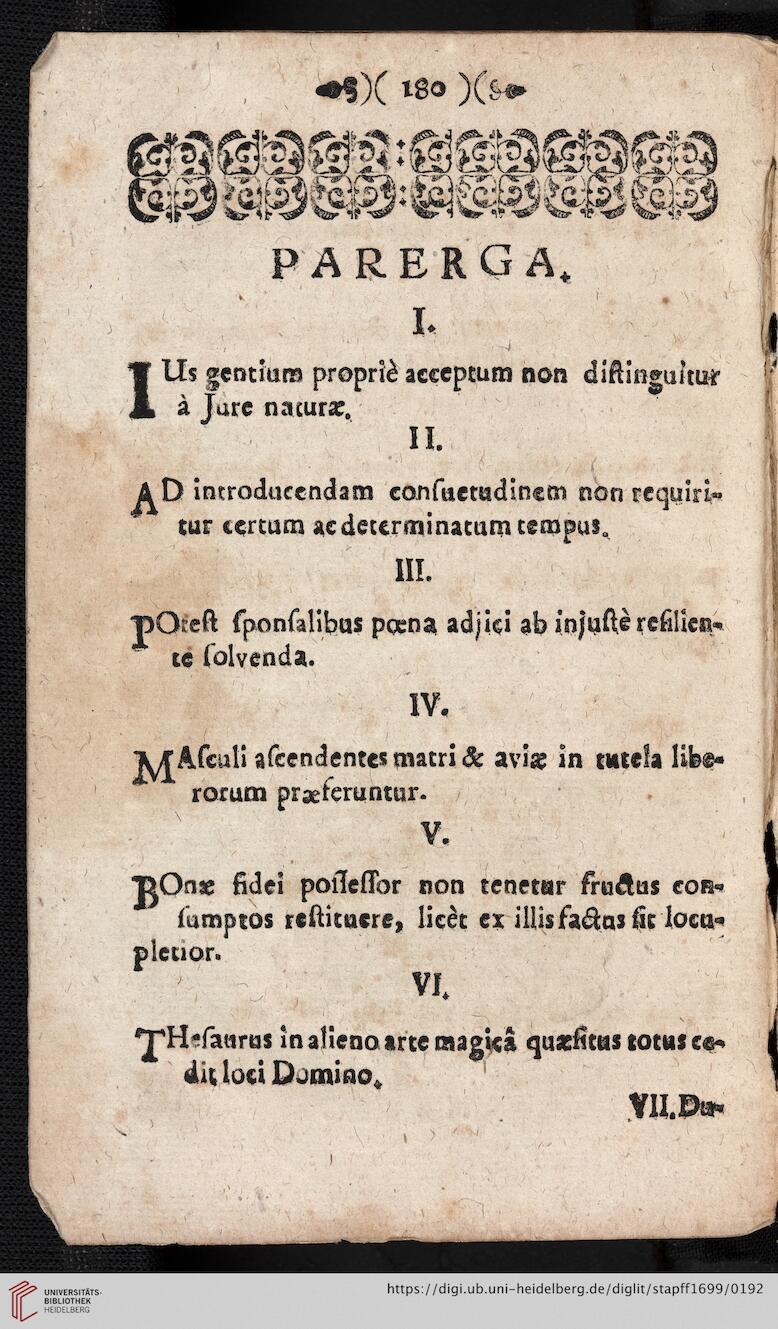 )( 180 )(
PARERGA.
I.
IUs gentium propriè acceptum non diſtinguitur
à Jure naturæ.
II.
AD introducendam conſuetudinem non requiri-
tur certum ac determinatum tempus.
III.
POteſt ſponſalibus pœna adjici ab injuſtè reſilien-
te ſolvenda.
IV.
MAſculi aſcendentes matri & aviæ in tutela libe-
rorum præferuntur.
V.
BOnæ fidei poſſeſſor non tenetur fructus con-
ſumptos reſtituere, licèt ex illis factus ſit locu-
pletior.
VI.
THeſaurus in alieno arte magicâ quæſitus totus ce-
dit loci Domino.
VII. Du-
UNIVERSITÄTS-
BIBLIOTHEK
HEIDELBERG
https://digi.ub.uni-heidelberg.de/diglit/stapff1699/0192